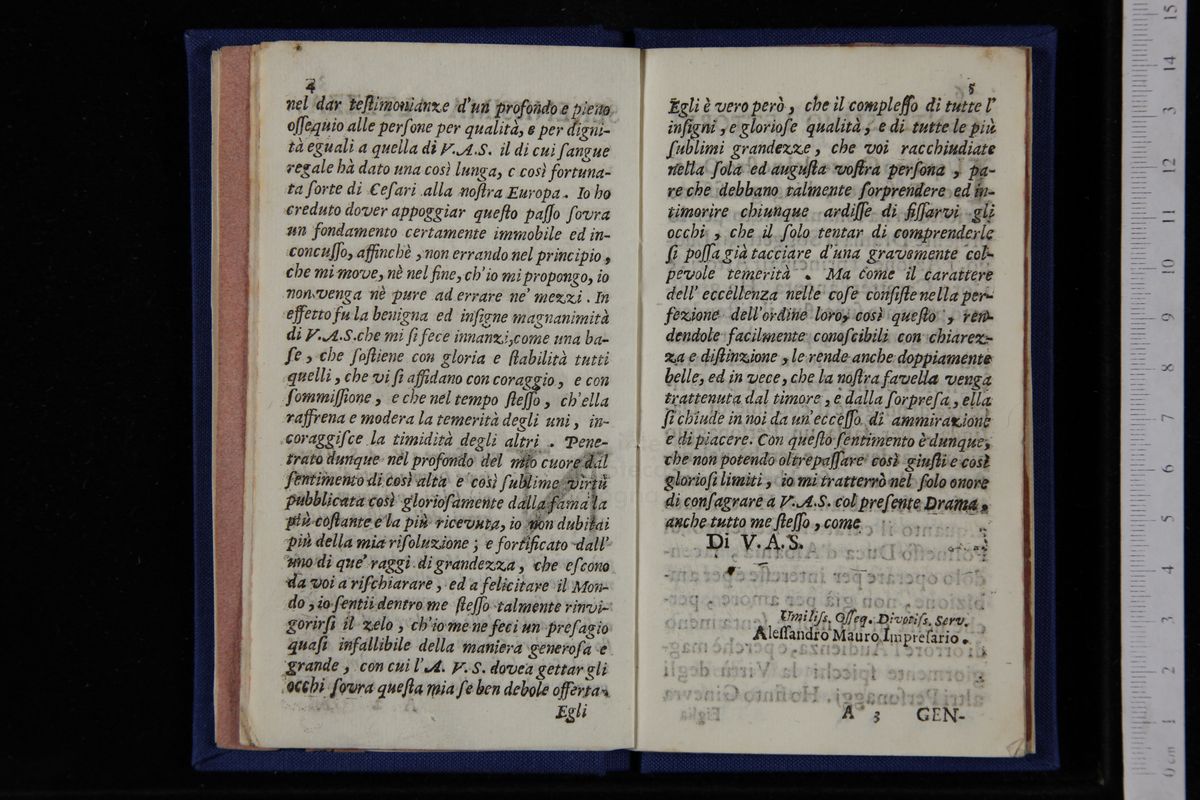 4
nel dar teſtimonianze d'un profondo e pieno
oſſequio alle perſone per qualità, e per digni-
tà eguali a quella di V.A.S. il di cui ſangue
regale hà dato una così lunga, e così fortuna-
ta ſorte di Ceſari alla noſtra Europa. Io ho
creduto dover appoggiar queſto paſſo ſovra
un fondamento certamente immobile ed in-
concuſſo, affinchè, non errando nel principio,
che mi move, nè nel fine, ch'io mi propongo, io
non venga nè pure ad errare ne' mezzi. In
effetto fu la benigna ed inſigne magnanimità
di V.A.S. che mi ſi fece innanzi, come una ba-
ſe, che ſoſtiene con gloria e ſtabilità tutti
quelli, che vi ſi affidano con coraggio, e con
ſommiſſione, e che nel tempo ſteſſo, ch'ella
raffrena e modera la temerità degli uni, in-
coraggiſce la timidità degli altri. Pene-
trato dunque nel profondo del mio cuore dal
ſentimento di così alta e così ſublime virtù
pubblicata così glorioſamente dalla fama la
più coſtante e la più ricevuta, io non dubitai
più della mia riſoluzione; e fortificato dall'
uno di que' raggi di grandezza, che eſcono
da voi a riſchiarare, ed a felicitare il Mon-
do, io ſentii dentro me ſteſſo talmente rinvi-
gorirſi il zelo, ch'io me ne feci un preſagio
quaſi infallibile della maniera generoſa e
grande, con cui l'A. V. S. dovea gettar gli
occhi ſovra queſta mia ſe ben debole offerta.
Egli
5
Egli è vero però, che il compleſſo di tutte l'
inſigni, e glorioſe qualità, e di tutte le più
ſublimi grandezze, che voi racchiudiate
nella ſola ed auguſta voſtra perſona, pa-
re che debbano talmente ſorprendere ed in-
timorire chiunque ardiſſe di fiſſarvi gli
occhi, che il ſolo tentar di comprenderle
ſi poſſa già tacciare d'una gravemente col-
pevole temerità. Ma come il carattere
dell' eccellenza nelle coſe conſiſte nella per-
fezione dell'ordine loro, così queſto, ren-
dendole facilmente conoſcibili con chiarez-
za e diſtinzione, le rende anche doppiamente
belle, ed in vece, che la noſtra favella venga
trattenuta dal timore, e dalla ſorpreſa, ella
ſi chiude in noi da un'ecceſſo di ammirazione
e di piacere. Con queſto ſentimento è dunque,
che non potendo oltrepaſſare così giuſti e così
glorioſi limiti, io mi tratterrò nel ſolo onore
di conſagrare a V.A.S. col preſente Drama,
anche tutto me ſteſſo, come
Di V. A. S.
Umiliſs. Oſſeq. Divotiſs. Serv.
Aleſſandro Mauro Impreſario.
A 3 GEN-